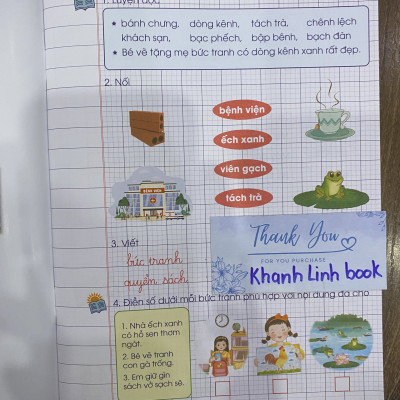 1. Luyện đọc
• bánh chưng, dòng kênh, tách trà, chênh lệch
khách sạn, bạc phếch, bập bênh, bạch đàn
• Bé vẽ tặng mẹ bức tranh có dòng kênh xanh rất đẹp.
2. Nối
bệnh viện
ếch xanh
viên gạch
tách trà
BỆNH VIỆN
3. Viết
bức tranh
quyển sách
Thank You
FOR YOU PURCHASE
Khanh Linh book
4. Điền số dưới mỗi bức tranh phù hợp với nội dung đã cho
1. Nhà ếch xanh
có hồ sen thơm
ngát.
2. Bé vẽ tranh
con gà trống.
3. Em giữ gìn
sách vở sạch sẽ.